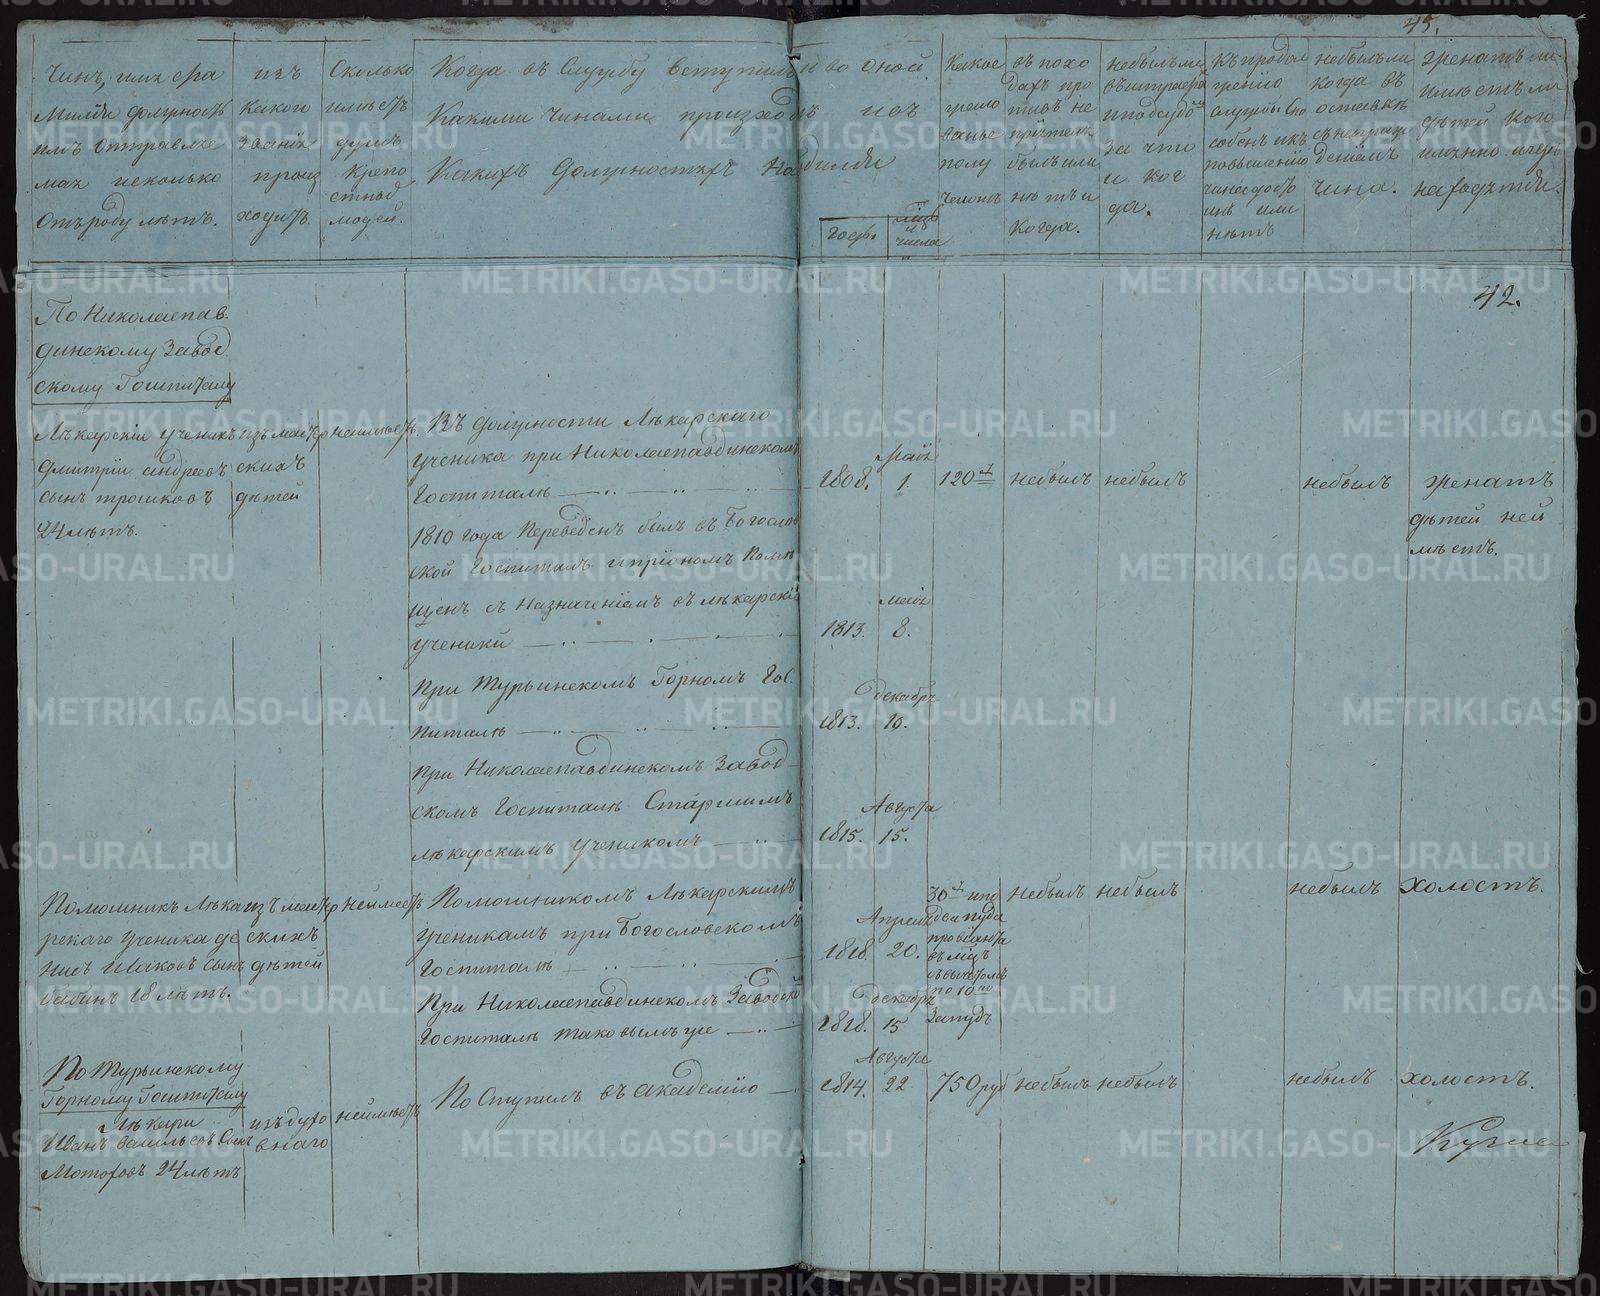 45.
Чинъ, имя фа
милія должность
имъ отправляе
мая исколько
отъ роду лѣтъ.
изъ
какого
званія
проис
ходитъ
Сколько
имѣетъ
душъ
крепо
стныхъ
людей.
Когда въ Службу вступилъ и во оной
Какими чинами произходилъ и въ
Какихъ должностяхъ находился
годы.
мцъ
и
числа
Какое
жало
ванье
полу
чаетъ
въ похо
дахъ про
тивъ не
пріятеля
былъ или
нѣтъ и
когда.
небылъли
въ штрафа
и подсудомъ
За что
и ког
да.
Къ продол
женію
службы спо
собенъ и къ
повышенію
чина достои
нъ или
нѣтъ
небылъли
когда въ
оставкѣ
съ награж
деніемъ
чина.
женатъ ли
имѣетъ ли
дѣтей кого
имянно и гдѣ
находятся.
42.
По Николаепав
динскому Завод
скому Гошпиталу
Лѣкарскіи ученикъ
Дмитріи андреевъ
сынъ трошковъ
24 лѣтъ.
изъ мастер
скихъ
дѣтей
неимѣетъ.
Въ должности Лѣкарскаго
ученика при Николаепавдинскомъ
Госпиталѣ
1808.
Маія
1.
120
небылъ
небылъ
небылъ
женатъ
дѣтей неи
мѣетъ.
1810 года переведѣнъ былъ въ Богослов
ской Госпиталь и приономъ помѣ
щенъ съ назначеніемъ въ лѣкарскіе
ученики
1813.
маія
8.
При Турьинскомъ Горномъ Гос
питалѣ
1813.
декабря
10.
При Николаепавдинскомъ Завод
скомъ Госпиталѣ Старшимъ
лѣкарскимъ ученикомъ
1815.
Августа
15.
Помошникъ Лѣка
рскаго ученика де
нисъ Иаковъ сынъ
бабинъ 18 лѣтъ.
изъ мастер
скихъ
дѣтей
неимѣетъ.
Помошникомъ Лѣкарскимъ
ученикамъ при Богословскомъ
Госпиталѣ
1818.
Апреля
20.
30 ипо
два пуда
провіанта
въ мцъ
съ вычетомъ
по 10
За пудъ
небылъ
небылъ
небылъ
холостъ.
При Николаепавдинскомъ Заводско
Госпиталѣ таковымъ же
1818.
декабря
15
По Турьинскому
Горному Гошпиталу
Лѣкари
Иванъ васильевъ Сынъ
Мотофовъ 24 лѣтъ
изъ духо
внаго
неимѣетъ
По Ступилъ въ академію
1814.
Августа
22.
750 руб
небылъ
небылъ
небылъ
холостъ.